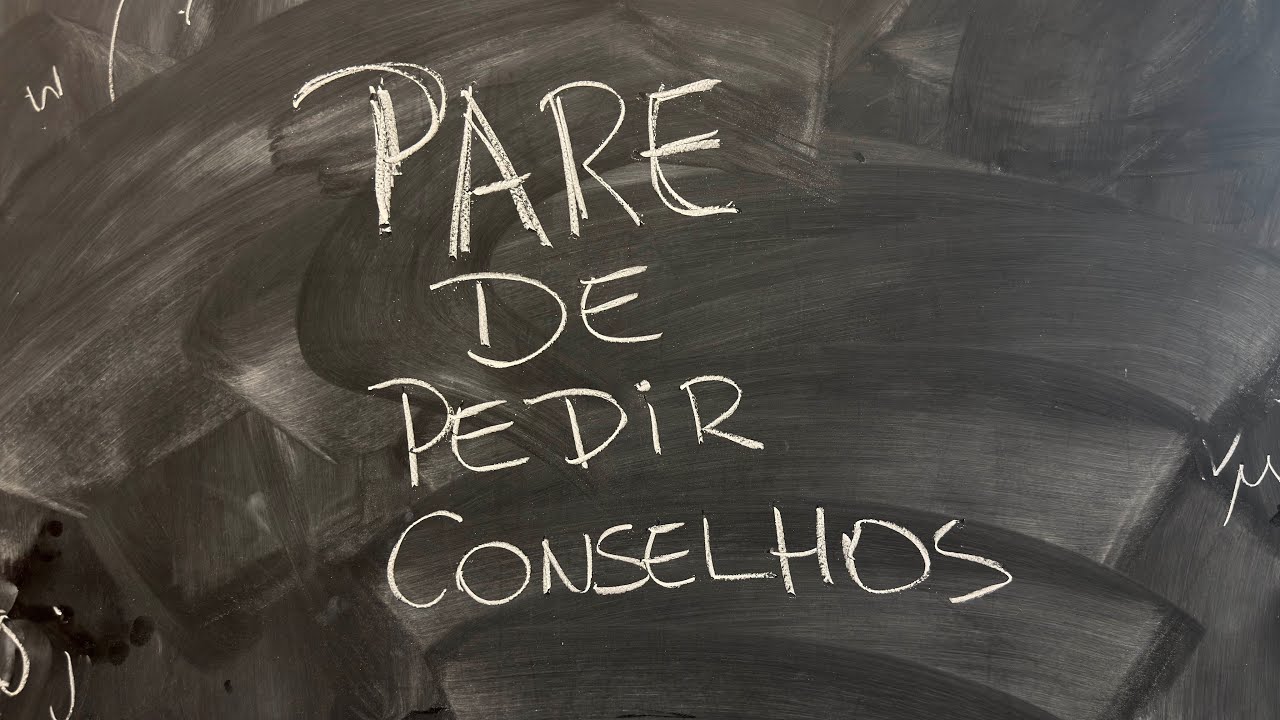 PARE
DE
PEDIR
CONSELHOS